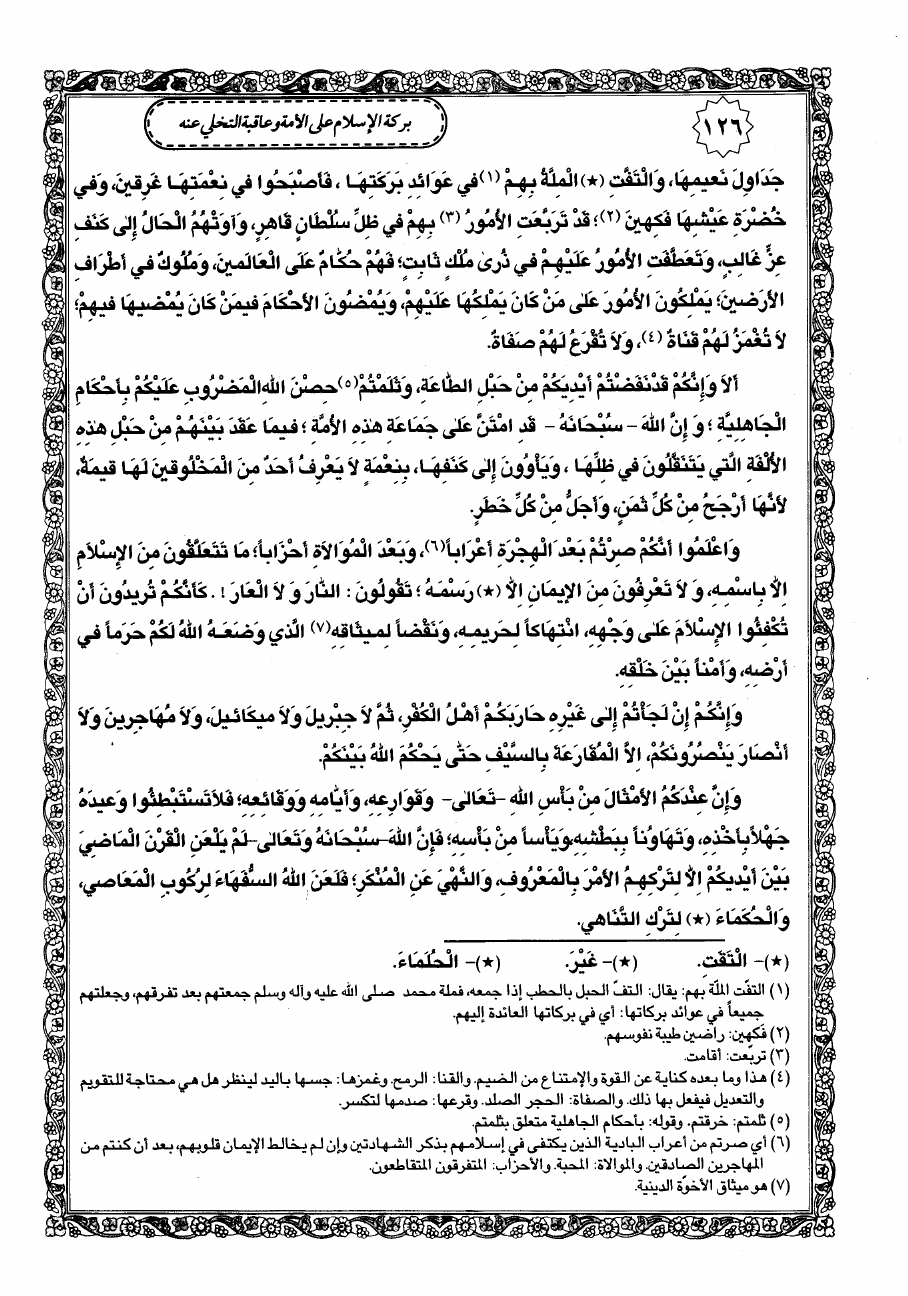 ١٢٦
بركة الإسلام على الأمة وعاقبة التخلي عنه
جَدَاوِلَ نَعيمِهَا، وَالْتَفَّتِ (★) الْمِلَّةُ بِهِمْ (١) في عَوَائِدِ بَرَكَتِهَا ، فَأَصْبَحُوا في نِعْمَتِهَا غَرِقينَ، وَفي
خُضْرَةِ عَيْشِهَا فَكِهينَ (٢)؛ قَدْ تَرَبَّعَتِ الأُمُورُ (٣) بِهِمْ في ظِلِّ سُلْطَانٍ قَاهِرٍ، وَآوَتْهُمُ الْحَالُ إِلىٰ كَنَفِ
عِزٍّ غَالِبٍ، وَتَعَطَّفَتِ الأُمُورُ عَلَيْهِمْ في ذُرىٰ مُلْكٍ ثَابِتٍ؛ فَهُمْ حُكَّامٌ عَلَى الْعَالَمينَ، وَمُلُوكٌ في أَطْرَافِ
الأَرَضينَ؛ يَمْلِكُونَ الأُمُورَ عَلىٰ مَنْ كَانَ يَمْلِكُهَا عَلَيْهِمْ، وَيُمْضُونَ الأَحْكَامَ فيمَنْ كَانَ يُمْضيهَا فيهِمْ؛
لاَ تُغْمَزُ لَهُمْ قَنَاةٌ (٤)، وَلاَ تُقْرَعُ لَهُمْ صَفَاةٌ.
أَلاَ وَإِنَّكُمْ قَدْ نَفَضْتُمْ أَيْدِيَكُمْ مِنْ حَبْلِ الطَّاعَةِ، وَثَلَمْتُمْ (٥) حِصْنَ اللهِ الْمَضْرُوبِ عَلَيْكُمْ بِأَحْكَامِ
الْجَاهِلِيَّةِ ؛ وَ إِنَّ اللهَ – سُبْحَانَهُ – قَدِ امْتَنَّ عَلىٰ جَمَاعَةِ هٰذِهِ الأُمَّةِ ؛ فيمَا عَقَدَ بَيْنَهُمْ مِنْ حَبْلِ هٰذِهِ
الأُلْفَةِ الَّتي يَتَنَقَّلُونَ في ظِلِّهَا ، وَيَأْوُونَ إِلىٰ كَنَفِهَا، بِنِعْمَةٍ لاَ يَعْرِفُ أَحَدٌ مِنَ الْمَخْلُوقينَ لَهَا قيمَةً،
لأَنَّهَا أَرْجَحُ مِنْ كُلِّ ثَمَنٍ، وَأَجَلُّ مِنْ كُلِّ خَطَرٍ.
وَاعْلَمُوا أَنَّكُمْ صِرْتُمْ بَعْدَ الْهِجْرَةِ أَعْرَاباً (٦)، وَبَعْدَ الْمُوَالاَةِ أَحْزَاباً؛ مَا تَتَعَلَّقُونَ مِنَ الإِسْلاَمِ
إِلاَّ بِاسْمِهِ، وَ لاَ تَعْرِفُونَ مِنَ الإيمَانِ إِلاَّ (★) رَسْمَهُ ؛ تَقُولُونَ : النَّارَ وَ لاَ الْعَارَ ! . كَأَنَّكُمْ تُريدُونَ أَنْ
تُكْفِئُوا الإِسْلاَمَ عَلىٰ وَجْهِهِ، انْتِهَاكاً لِحَريمِهِ، وَنَقْضاً لِميثَاقِهِ (٧) الَّذي وَضَعَهُ اللهُ لَكُمْ حَرَماً في
أَرْضِهِ، وَأَمْناً بَيْنَ خَلْقِهِ.
وَإِنَّكُمْ إِنْ لَجَأْتُمْ إِلىٰ غَيْرِهِ حَارَبَكُمْ أَهْلُ الْكُفْرِ، ثُمَّ لاَ جِبْريلَ وَلاَ ميكَائيلَ، وَلاَ مُهَاجِرينَ وَلاَ
أَنْصَارَ يَنْصُرُونَكُمْ، إِلاَّ الْمُقَارَعَةَ بِالسَّيْفِ حَتّىٰ يَحْكُمَ اللهُ بَيْنَكُمْ.
وَإِنَّ عِنْدَكُمُ الأَمْثَالَ مِنْ بَأْسِ اللهِ –تَعَالىٰ– وَقَوَارِعِهِ، وَأَيَّامِهِ وَوَقَائِعِهِ؛ فَلاَ تَسْتَبْطِئُوا وَعيدَهُ
جَهْلاً بِأَخْذِهِ، وَتَهَاوُناً بِبَطْشِهِ، وَيَأْساً مِنْ بَأْسِهِ؛ فَإِنَّ اللهَ–سُبْحَانَهُ وَتَعَالىٰ–لَمْ يَلْعَنِ الْقَرْنَ الْمَاضِيَ
بَيْنَ أَيْديكُمْ إِلاَّ لِتَرْكِهِمُ الأَمْرَ بِالْمَعْرُوفِ، وَالنَّهْيَ عَنِ الْمُنْكَرِ؛ فَلَعَنَ اللهُ السُّفَهَاءَ لِرُكُوبِ الْمَعَاصي،
وَالْحُكَمَاءَ (★) لِتَرْكِ التَّنَاهي.
(★)– الْتَقَتِ. (★)– غَيْرَ. (★)– الْحُلَمَاءَ.
(١) التفّت الملّة بهم: يقال: التفّ الحبل بالحطب إذا جمعه، فملة محمد صلى الله عليه وآله وسلم جمعتهم بعد تفرقهم، وجعلتهم
جميعاً في عوائد بركاتها: أي في بركاتها العائدة إليهم.
(٢) فَكِهين: راضين طيبة نفوسهم.
(٣) تربّعت: أقامت.
(٤) هذا وما بعده كناية عن القوة والإمتناع من الضيم. والقنا: الرمح. وغمزها: جسها باليد لينظر هل هي محتاجة للتقويم
والتعديل فيفعل بها ذلك. والصفاة: الحجر الصلد. وقرعها: صدمها لتكسر.
(٥) ثلمتم: خرقتم. وقوله: بأحكام الجاهلية متعلق بثلمتم.
(٦) أي صرتم من أعراب البادية الذين يكتفى في إسلامهم بذكر الشهادتين وإن لم يخالط الإيمان قلوبهم، بعد أن كنتم من
المهاجرين الصادقين. والموالاة: المحبة. والأحزاب: المتفرقون المتقاطعون.
(٧) هو ميثاق الأخوّة الدينية.